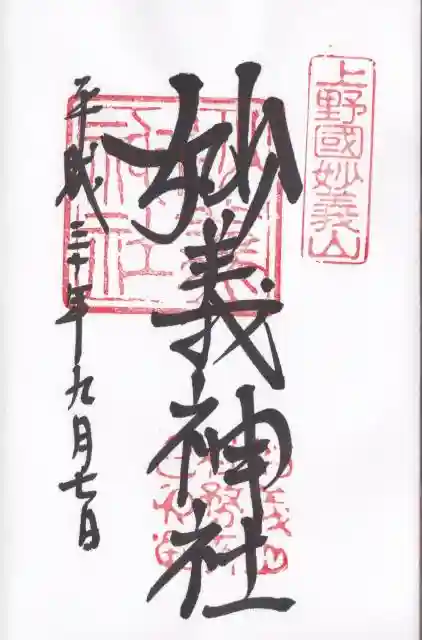 上野國妙義山
妙義神社
平成三十年九月七日